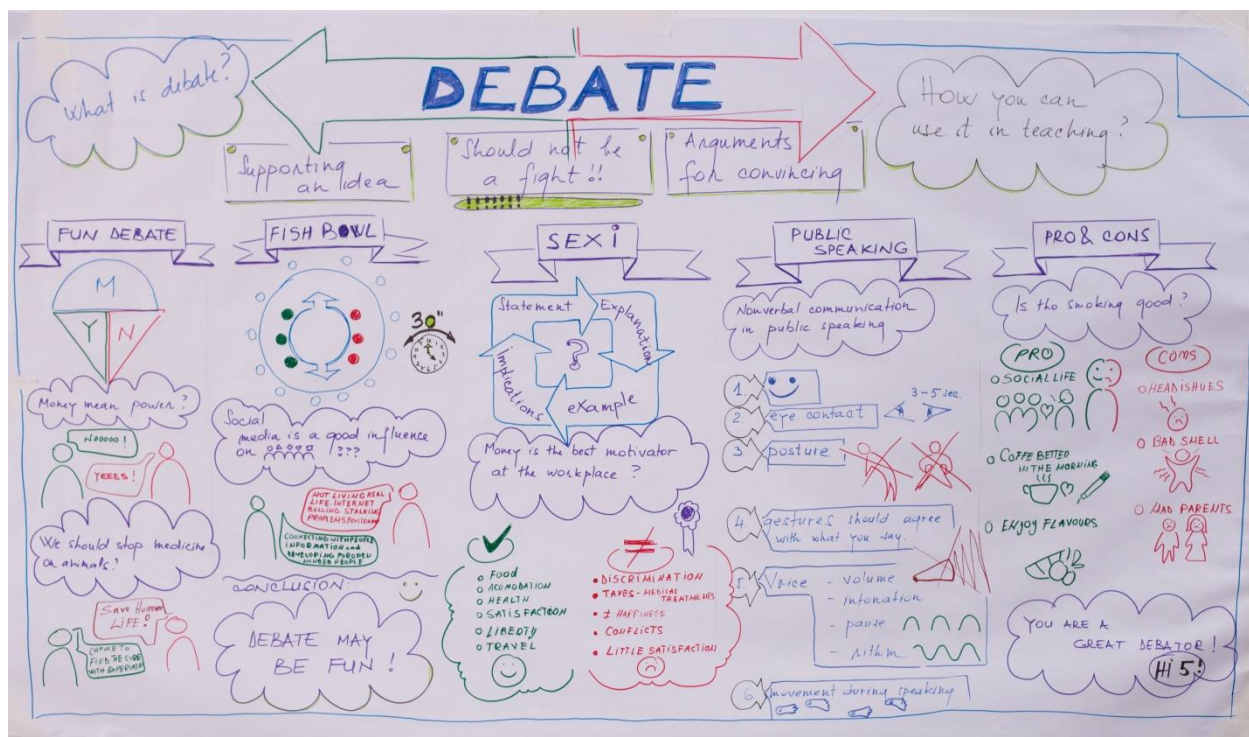 What is debate?
DEBATE
How you can
use it in teaching?
Supporting
an idea
Should not be
a fight!!
Arguments
for convincing
FUN DEBATE
M
Y
N
Money mean power?
NOOOOO!
YEEES!
We should stop medicine
on animals?
Save Human
LIFE!
CHANCE TO
FIND THE CURE
WITH
FISH BOWL
30"
Social
media is a good influence
on ???
NOT LIVING REAL
LIFE. INTERNET
BULLING STALKING
PROBLEMS
CONNECTING WITH PEOPLE
INFORMATION and
DEVELOPING FOR OPEN
MINDED PEOPLE
CONCLUSION:
DEBATE MAY
BE FUN!
SEXi
Statement
Explanation
eXample
implications
?
Money is the best motivator
at the workplace?
FOOD
ACOMODATION
HEALTH
SATISFACTOON
LIBERTY
TRAVEL
≠
DISCRIMINATION
TAXES - MEDICAL
TREATMENTS
± HAPPINESS
CONFLICTS
LITTLE SATISFACTION
PUBLIC
SPEAKING
Nonverbal communication
in public speaking
1.
2. eye contact 3-5 sec.
3. posture
4. gestures should agree
with what you say.
5. Voice - volume
- intonation
- pause
- rithm
6. movement during speaking
PRO & CONS
Is the smoking good?
PRO
SOCIAL LIFE
COFFE BETTER
IN THE MORNING
ENJOY FLAVOURS
CONS
HEADISHUES
BAD SMELL
MAD PARENTS
YOU ARE A
GREAT DEBATOR!
Hi 5!